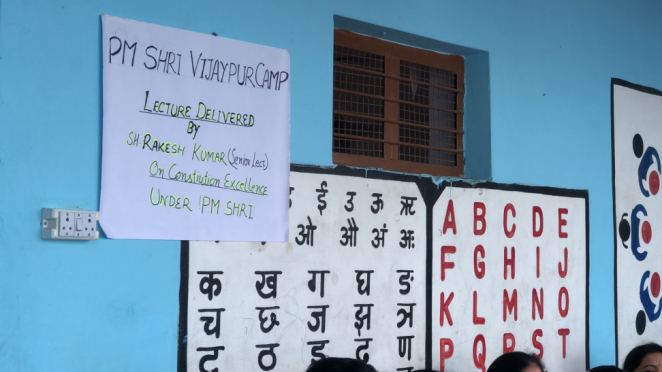 PM SHRI VIJAYPUR CAMP
LECTURE DELIVERED
BY
SH. RAKESH KUMAR (Senior Lect)
On Constiution Excellence
UNDER PM SHRI
ई उ ऊ ऋ
ओ औ अं अः
क ख ग घ ङ
च छ ज झ ञ
ट ठ ड ढ ण
A B C D E
F G H I J
K L M N O
P Q R S T